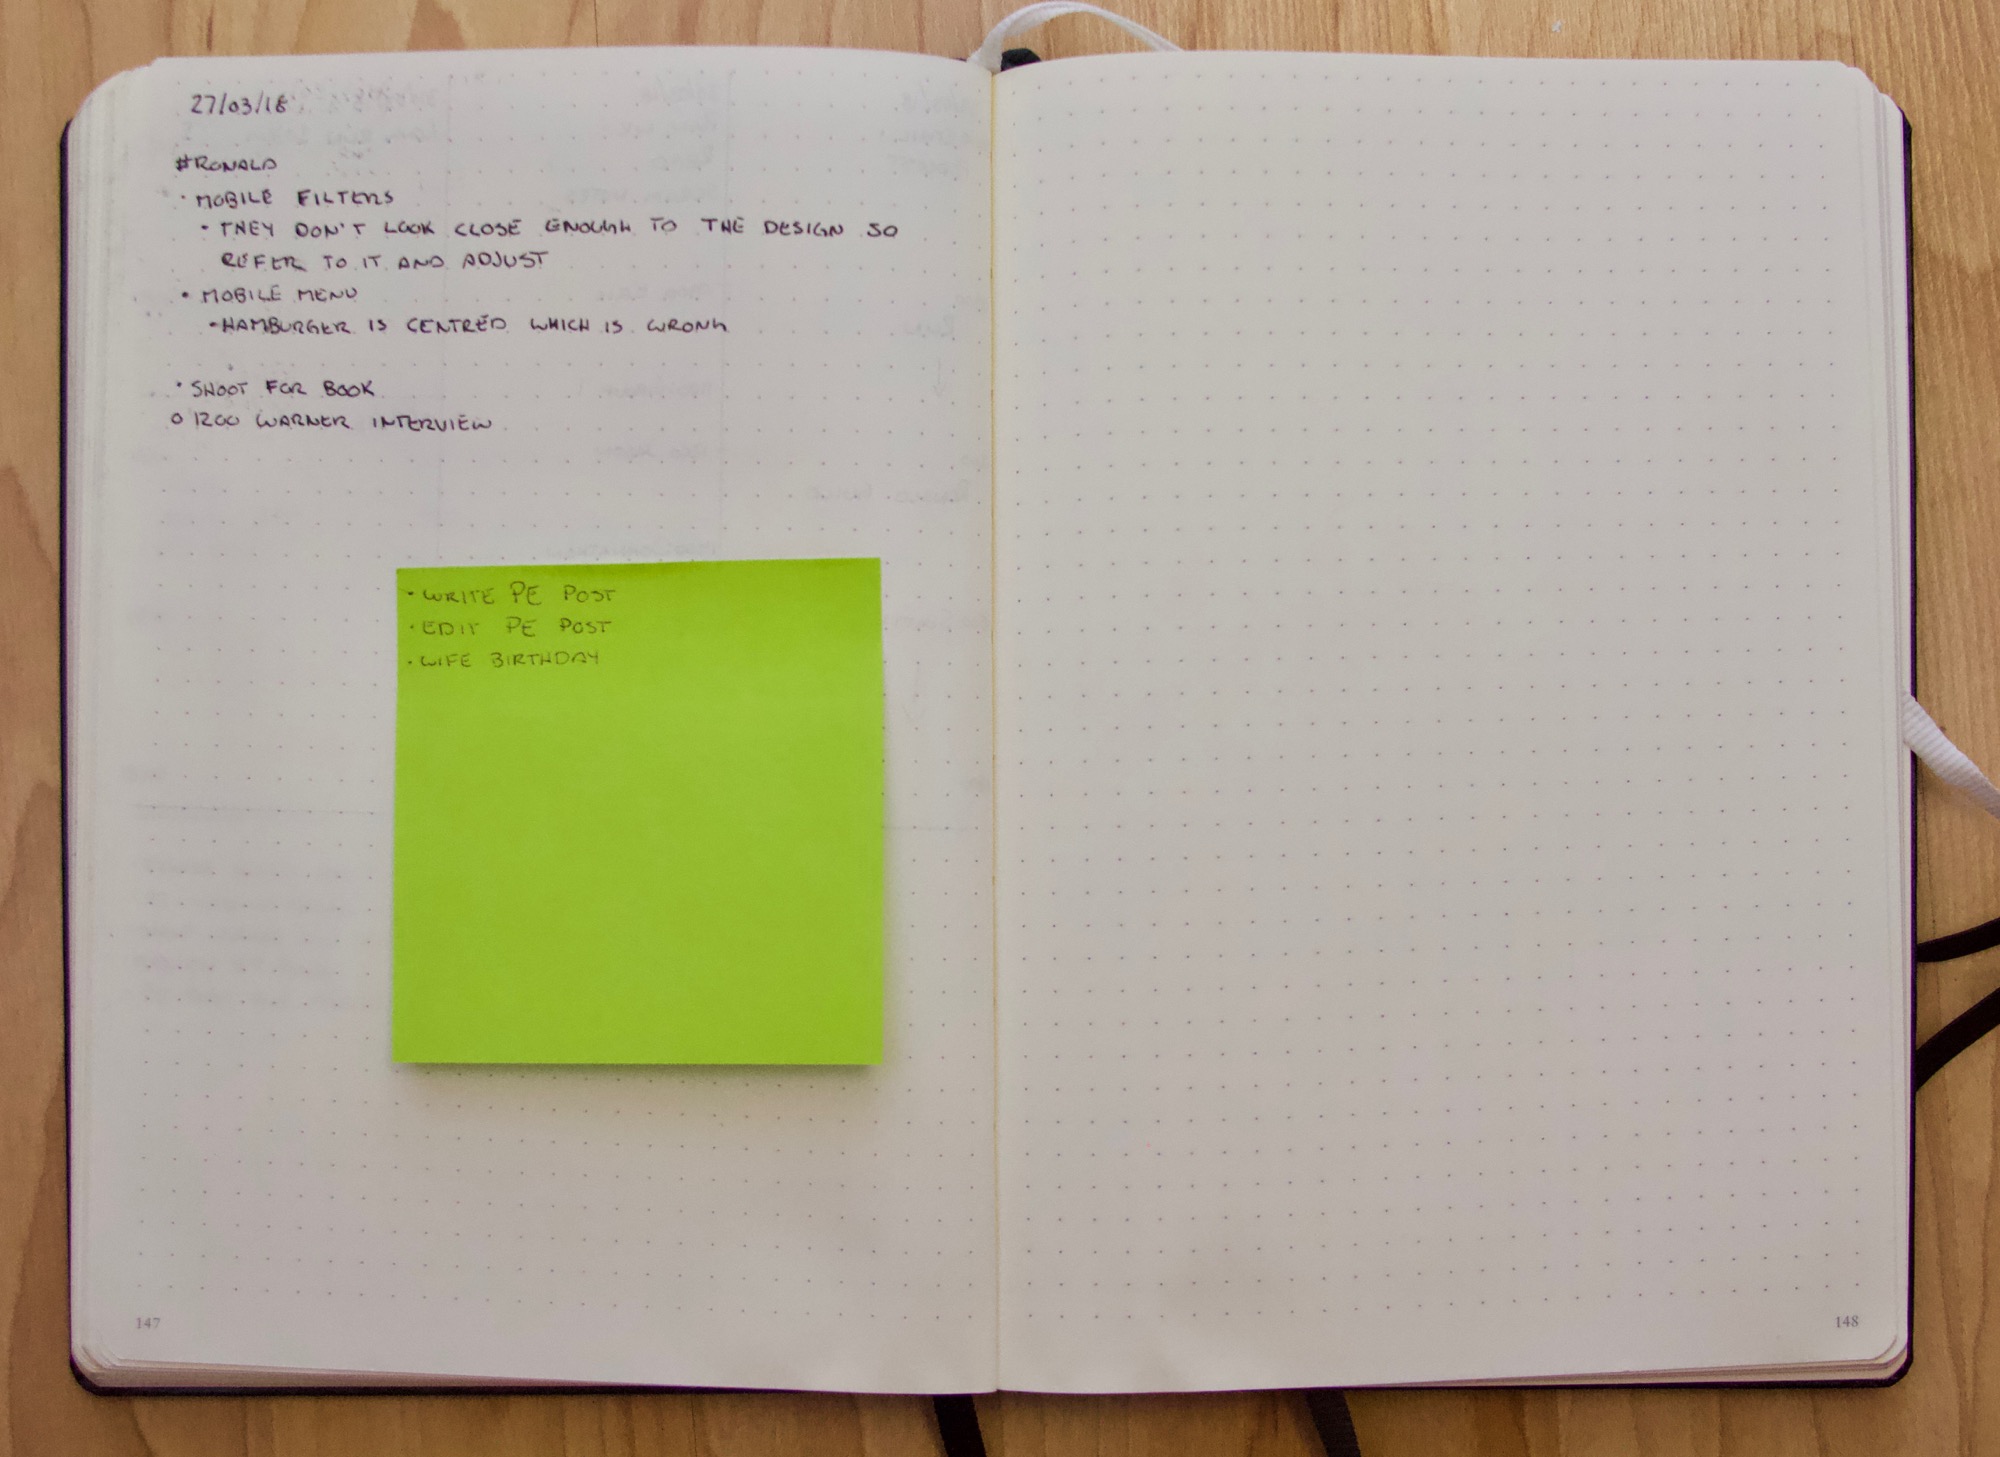 27/03/18
#RONALD
· MOBILE FILTERS
· THEY DON'T LOOK CLOSE ENOUGH TO THE DESIGN SO
REFER TO IT AND ADJUST
· MOBILE MENU
· HAMBURGER IS CENTRED WHICH IS WRONG
· SHOOT FOR BOOK
O 1200 WARNER INTERVIEW
· WRITE PE POST
· EDIT PE POST
· WIFE BIRTHDAY
147
148